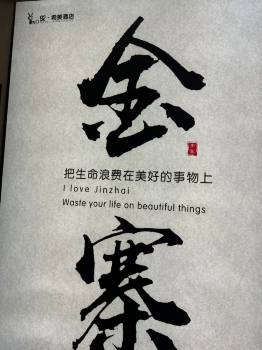 希美酒店
金
把生命浪费在美好的事物上
I love Jinzhai
Waste your life on beautiful things
寨